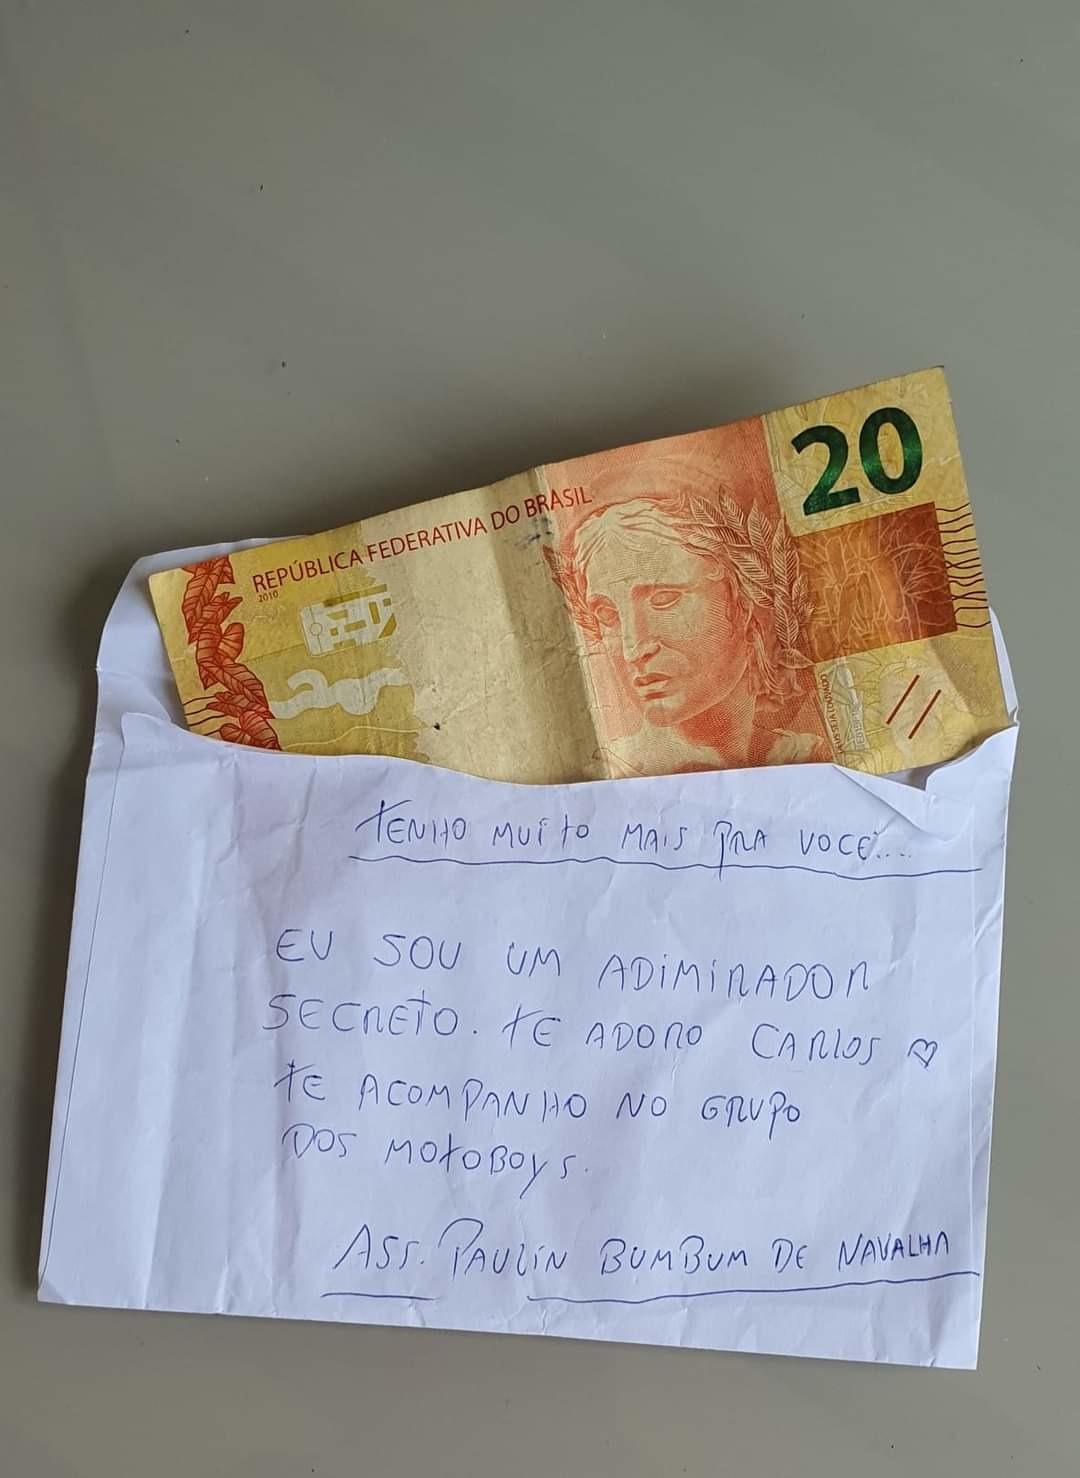 20
REPÚBLICA FEDERATIVA DO BRASIL
2010
TENHO MUITO MAIS PRA VOCÊ....
EU SOU UM ADIMIRADOR
SECRETO. TE ADORO CARLOS ♡
TE ACOMPANHO NO GRUPO
DOS MOTOBOYS.
ASS. PAULIN BUMBUM DE NAVALHA